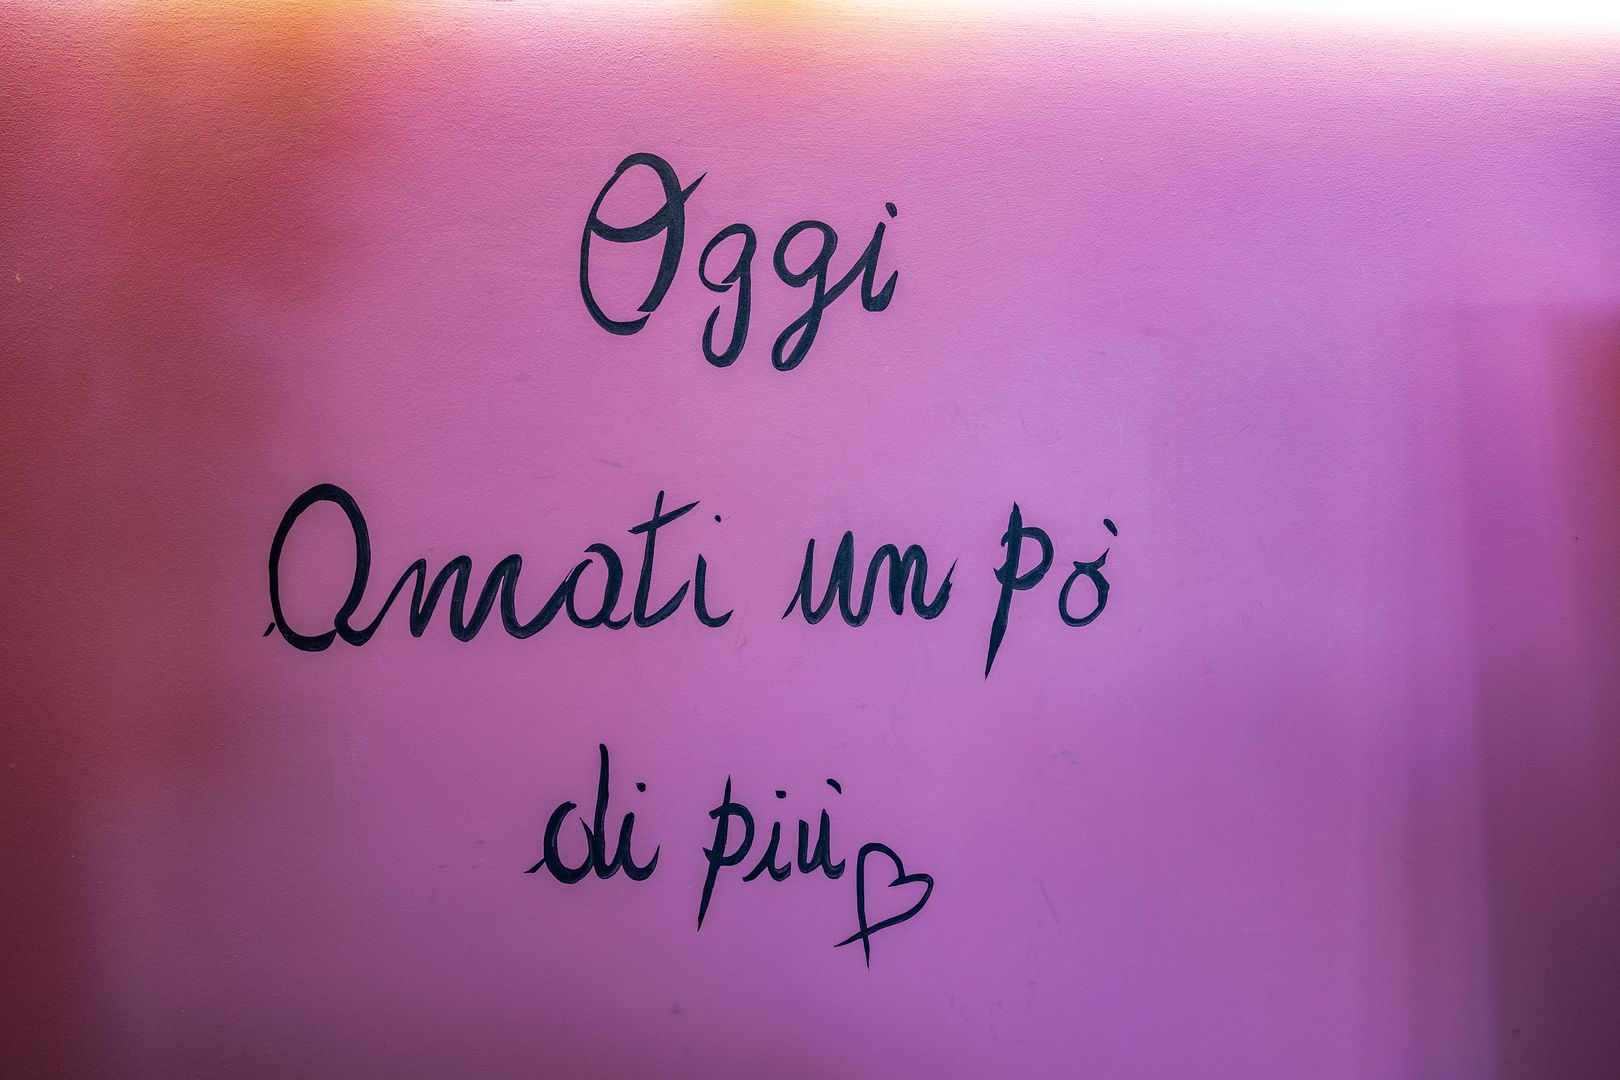 Oggi
Amati un pò
di più